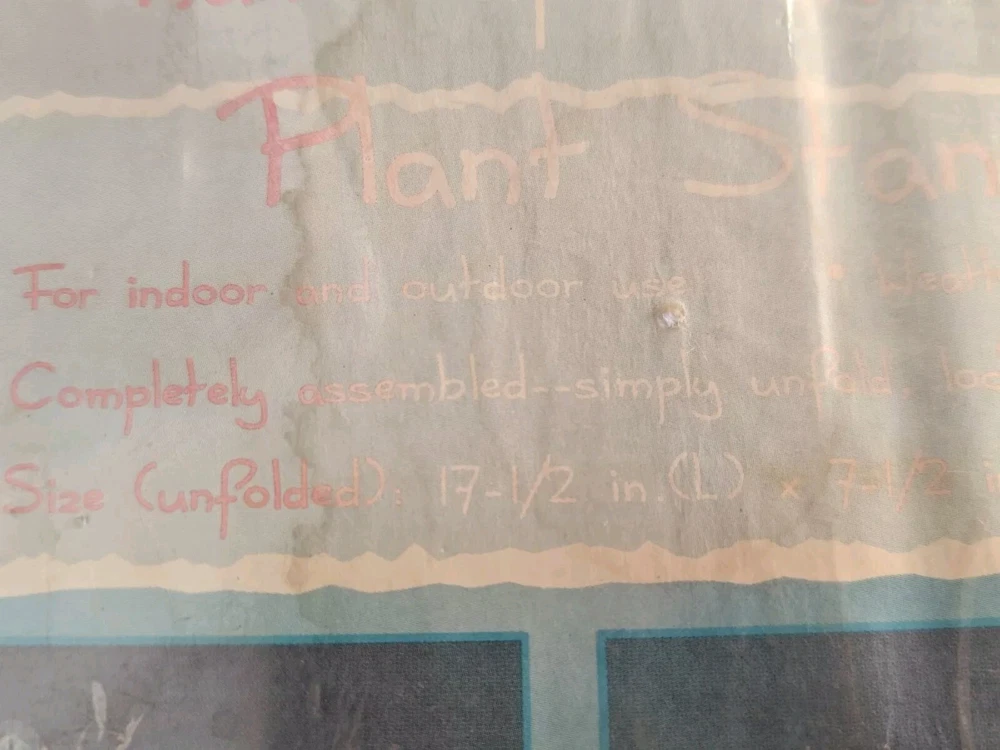 Plant Stan
For indoor and outdoor use
Completely assembled--simply unfold
Size (unfolded): 17-1/2 in. (L) x 7-1/2 i